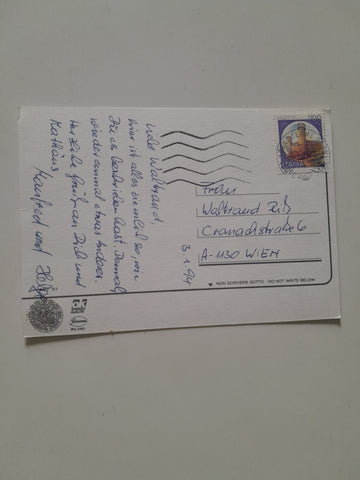 Liebe Waltraud,
hier ist alles ziemlich so, wie
Du es beschrieben hast. Jedenfalls
wieder einmal etwas Anderes.
Herzliche Grüße an Dich und
Mathias
Manfred und
3.1.94
Frau
Waltraud
Cranachstraße 6
A-1130 WIEN
▼ NON SCRIVERE SOTTO - DO NOT WRITE BELOW
MILANO
ITALIA